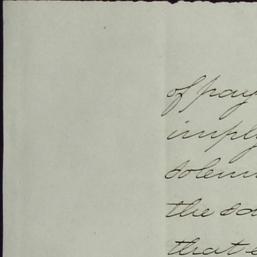 of pay
imply
solem
the so
that e